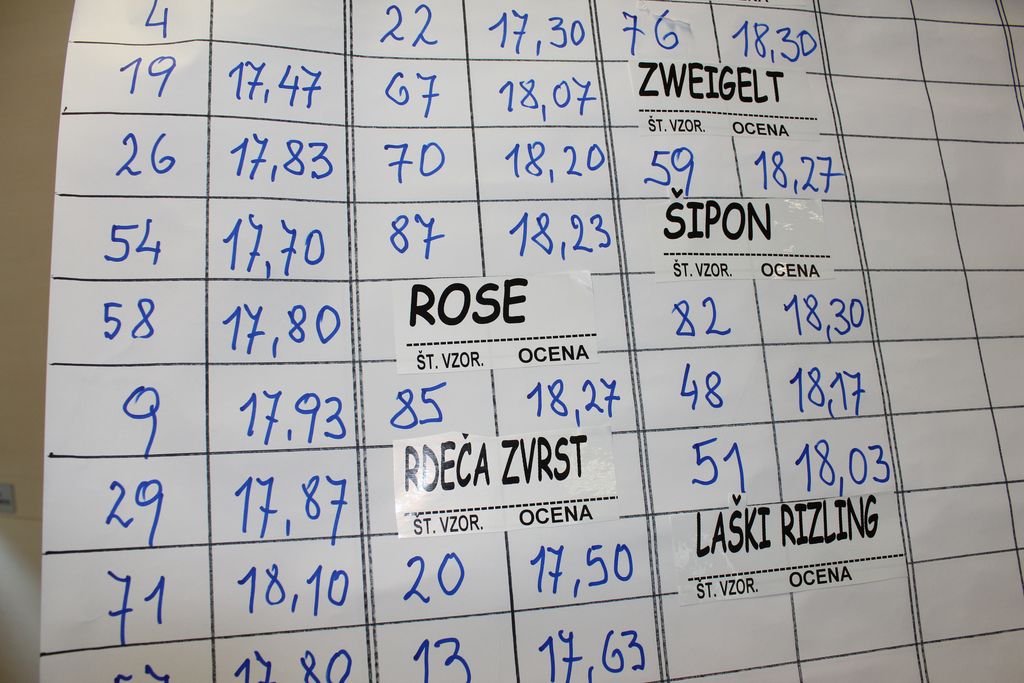 4
19 17,47
26 17,83
54 17,70
58 17,80
9 17,93
29 17,87
71 18,10
17,80
22 17,30
67 18,07
70 18,20
87 18,23
ROSE
ŠT. VZOR. OCENA
85 18,27
RDEČA ZVRST
ŠT. VZOR. OCENA
20 17,50
13 17,63
76 18,30
ZWEIGELT
ŠT. VZOR. OCENA
59 18,27
ŠIPON
ŠT. VZOR. OCENA
82 18,30
48 18,17
51 18,03
LAŠKI RIZLING
ŠT. VZOR. OCENA